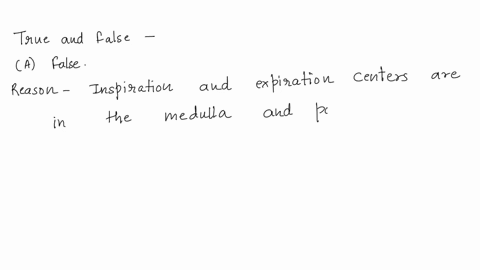 True and false -
(A) False.
Reason - Inspiration and expiration centers are
in the medulla and